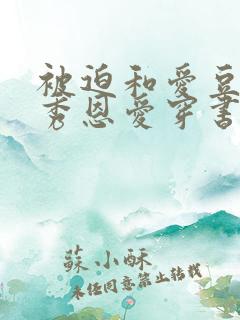 被迫和爱豆
秀恩爱穿书
蘇小酥
未经同意禁止转载